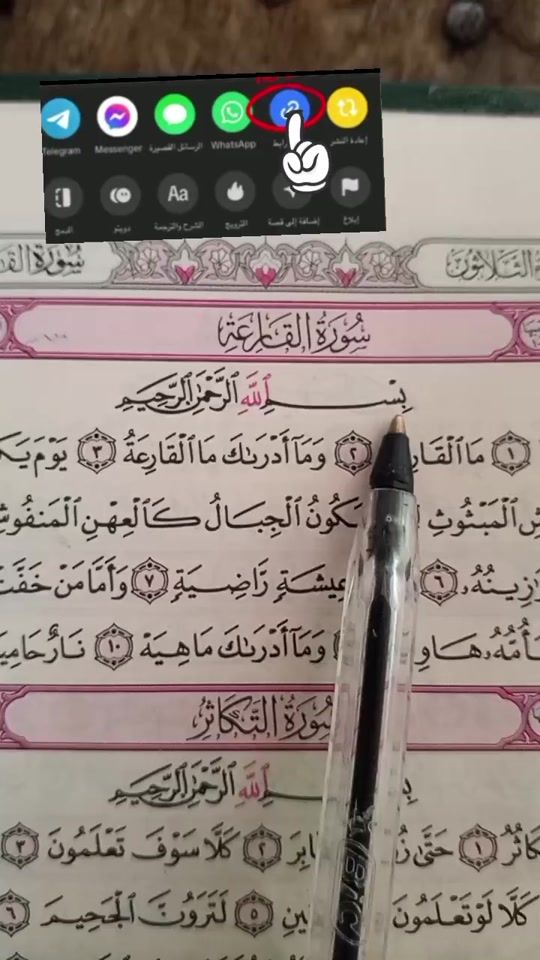 Telegram Messenger الرسائل القصيرة WhatsApp إعادة النشر
Aa
الدمج دويتو الشرح والترجمة الترويج إضافة إلى قصة إبلاغ
سُورَةُ القَارِعَةِ
بِسْمِ ٱللَّهِ ٱلرَّحْمَٰنِ ٱلرَّحِيمِ
١ مَا ٱلْقَارِ ٢ وَمَآ أَدْرَىٰكَ مَا ٱلْقَارِعَةُ ٣ يَوْمَ يَك
ٱلْمَبْثُوثِ يَكُونُ ٱلْجِبَالُ كَٱلْعِهْنِ ٱلْمَنفُوش
ٰزِينُهُۥ ٦ عِيشَةٍ رَّاضِيَةٍ ٧ وَأَمَّا مَنْ خَفَّت
فَأُمُّهُۥ هَاوِ وَمَآ أَدْرَىٰكَ مَا هِيَهْ ١٠ نَارٌ حَامِيَ
سُورَةُ التَّكَاثُرِ
ٱللَّهِ ٱلرَّحْمَٰنِ ٱلرَّحِيمِ
كَاثُرُ ١ حَتَّىٰ زُ ابِرَ ٢ كَلَّا سَوْفَ تَعْلَمُونَ ٣
كَلَّا لَوْ تَعْلَمُونَ ينِ ٥ لَتَرَوُنَّ ٱلْجَحِيمَ ٦